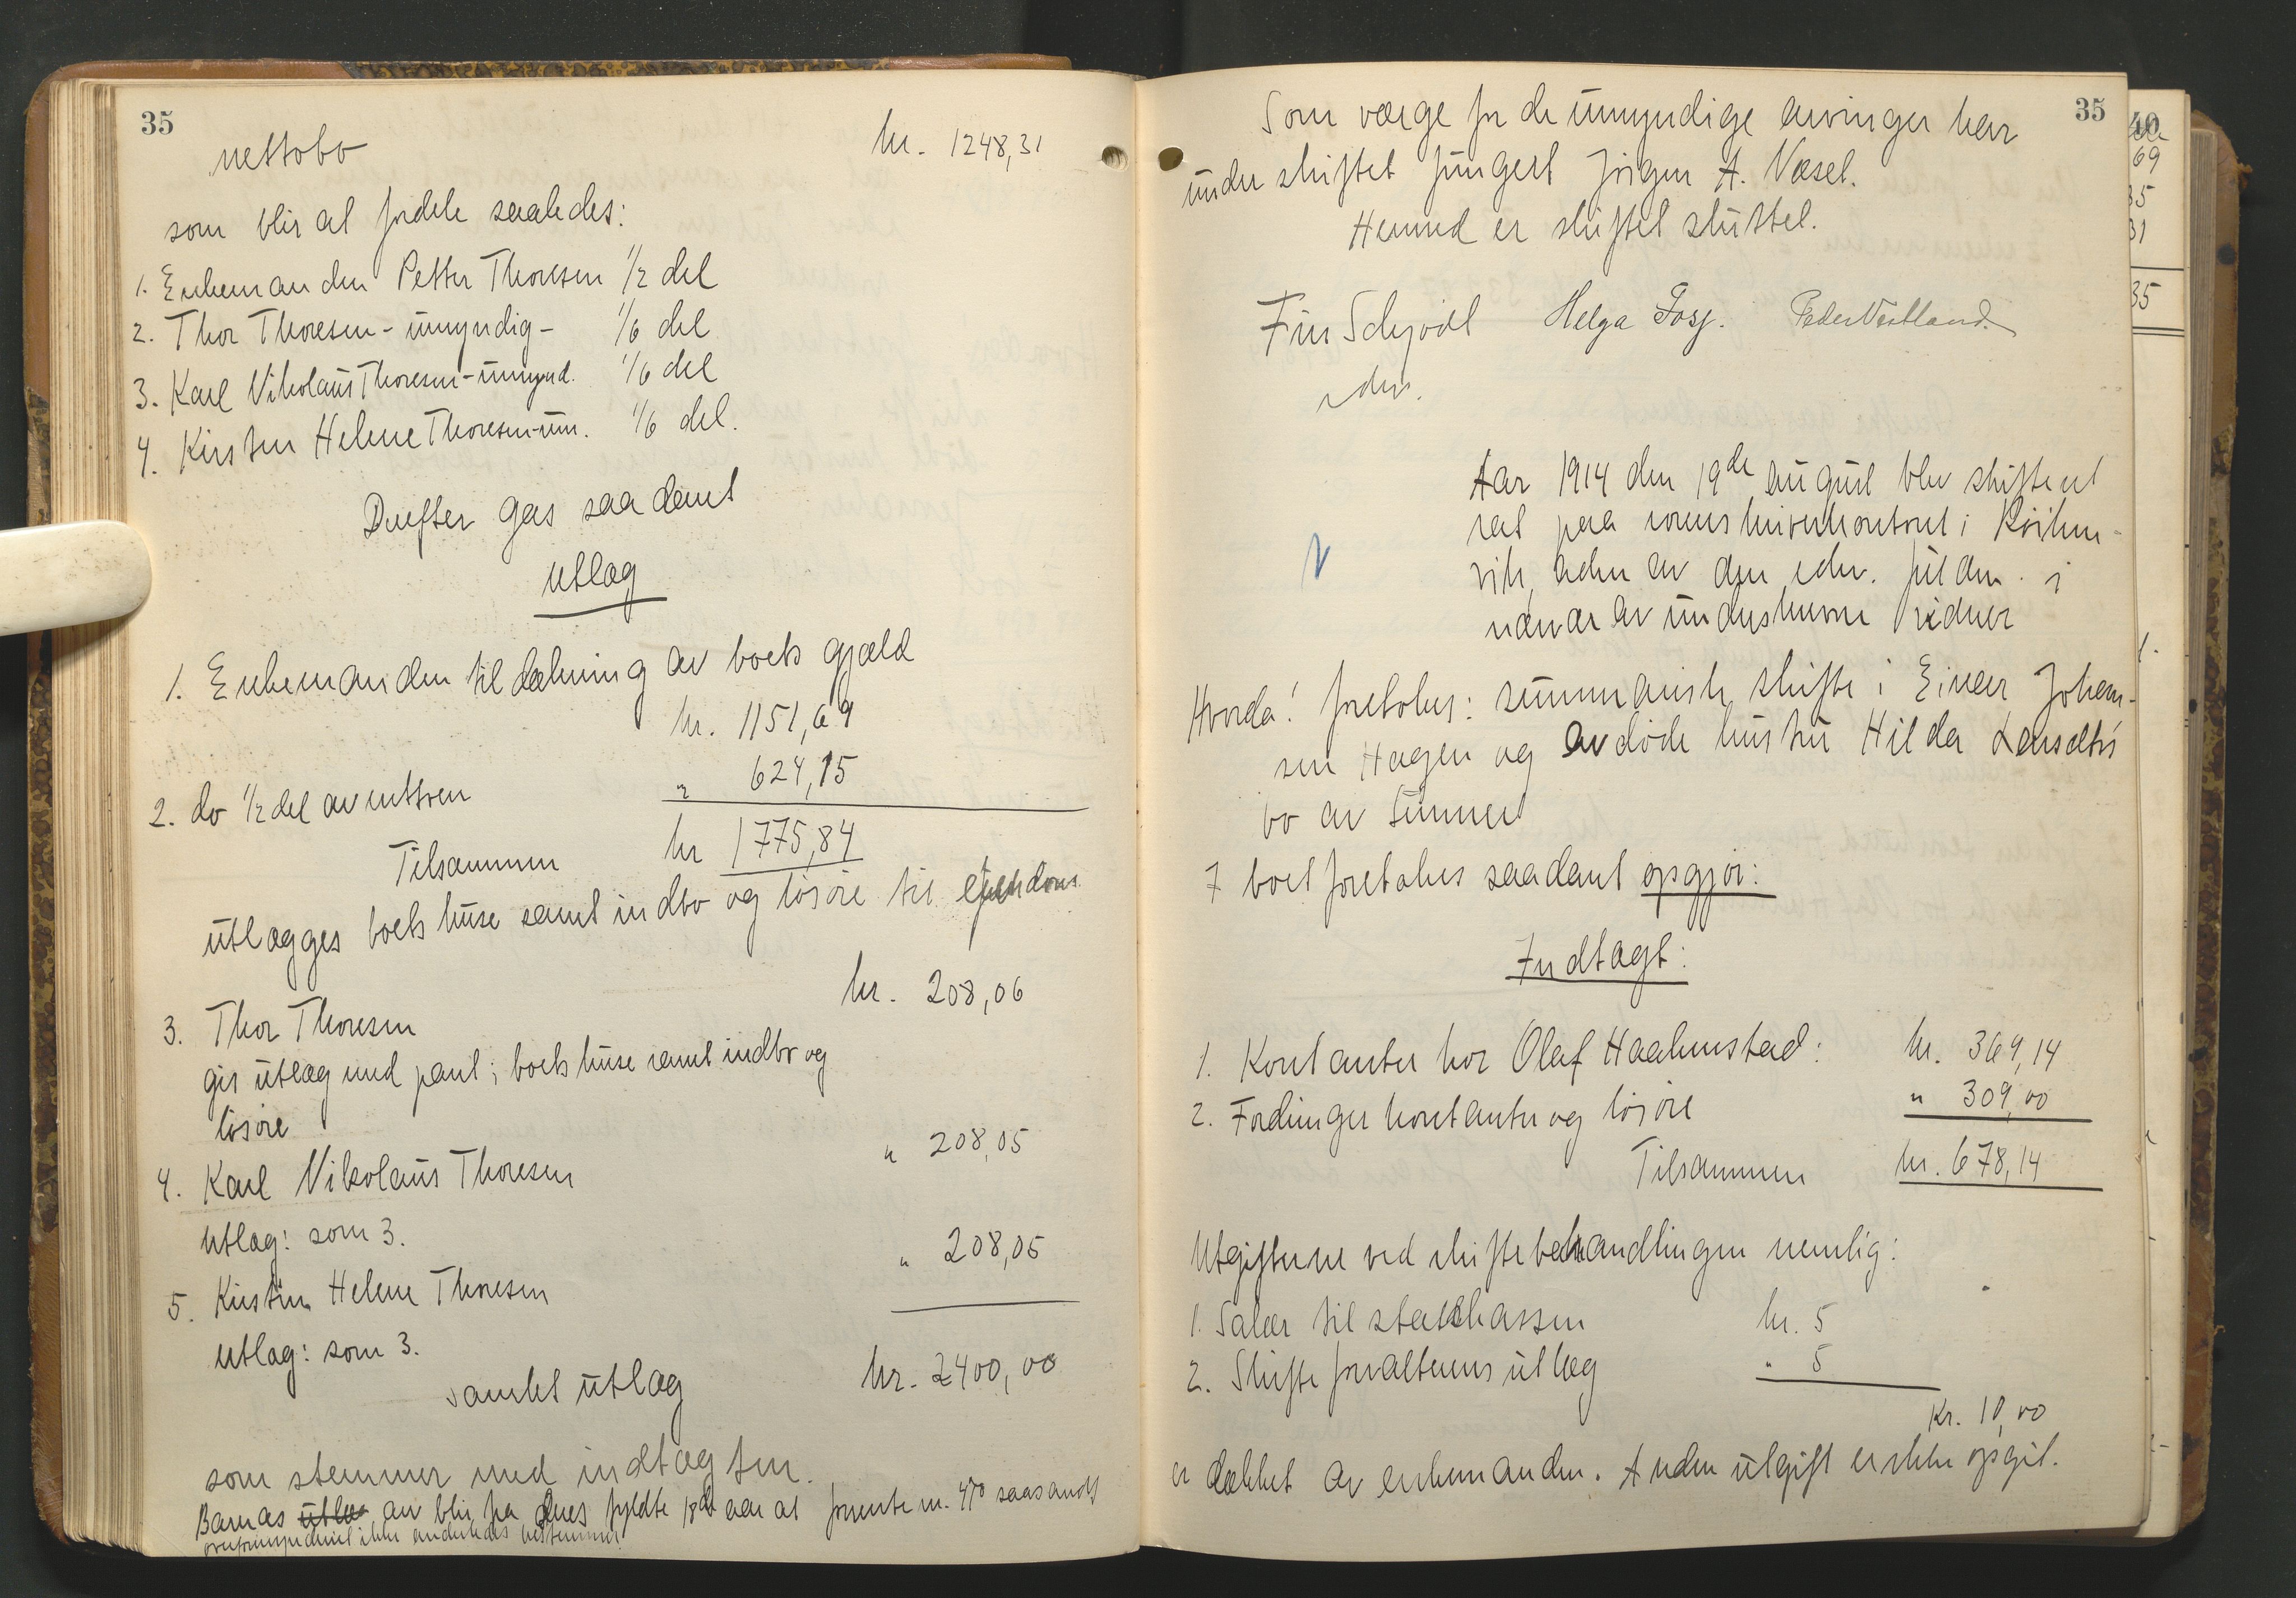 35
nettobo kr. 1248,31
som blir at fordele saaledes:
1. Enkemanden Petter Thoresen 1/2 del
2. Thor Thoresen - umyndig - 1/6 del
3. Karl Nikolaus Thoresen - umynd. 1/6 del
4. Kirsten Helene Thoresen - um. 1/6 del.
Derefter gås saadant
utlæg
1. Enkemanden til dækning av boets gjæld
kr. 1151,69
2. do 1/2 del av nettoen " 624,15
Tilsammen kr 1775,84
utlægges boets huse samt indbo og løsøre til eiendom
3. Thor Thoresen kr. 208,06
gis utlæg med pant i boets huse samt indbo og
løsøre
4. Karl Nikolaus Thoresen " 208,05
Utlæg: som 3.
5. Kirstin Helene Thoresen " 208,05
Utlæg: som 3.
samlet utlæg kr. 2400,00
som stemmer med indtægten.
Barnas utlæ arv blir fra deres fyldte 18de aar at forrente m. 4% saafremt
overformynderiet ikke anderledes bestemmer.
35
Som værge for de umyndige arvinger har
under skiftet fungert Jørgen A. Væsel.
Hermed er skiftet sluttet.
Finn Schjødt Helga Fosj. Peder Vestland
edsv.
Aar 1914 den 19de august blev skifteret
sat paa sorenskriverkontoret i Kristiansvik, adm av den edsv. fuldm. i
nærvær av underskrevne vidner
Hvorda! foretokes: summarisk skifte i Einar Johan-
sen Hagen og avdøde hustru Hilda Lauselths
bo av Tinnen
I boet foretokes saadant opgjør:
Indtægt:
1. Kontanter hos Olaf Haakenstad: kr. 369,14
2. Fordringer kontanter og løsøre " 309,00
Tilsammen kr. 678,14
Utgifterne ved skiftebehandlingen nemlig:
1. Salær til statskassen kr. 5
2. Skifteforvalterens utlæg " 5
Kr. 10,00
er dækket av enkemanden. Anden utgift er ikke opgit.
40
69
35
31
35